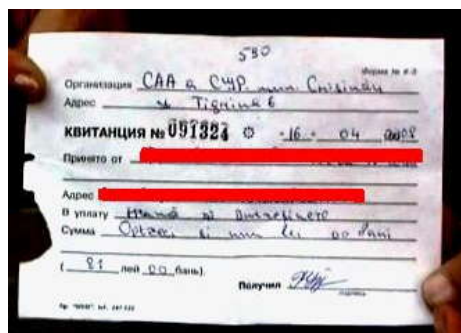 530
Форма № 0-3
Организация CAA a CŞP. mun Chişinău
Адрес Tighina 6
КВИТАНЦИЯ № 091324 16 04 2008
Принято от
Адрес
В уплату Hrană şi întreţinere
Сумма Optzeci şi unu lei 00 bani
( 81 лей 00 бань).
Получил
подпись